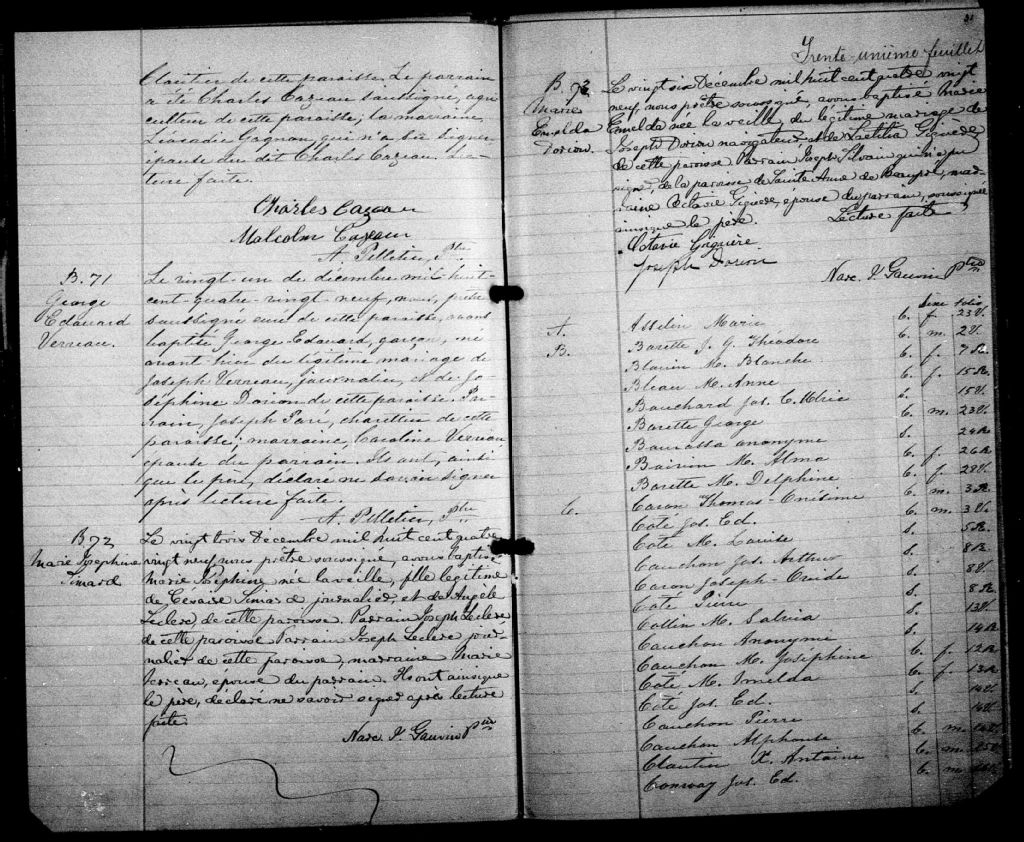 Cloutier de cette paroisse. Le parrain
a été Charles Cazeau soussigné, agri
culteur de cette paroisse; la marraine,
Léocadie Gagnon qui n'a su signer
épouse du dit Charles Cazeau. Lec-
ture faite.
Charles Cazeau
Malcolm Cazeau
A. Pelletier, Ptre
B. 71
George
Edouard
Verreau.
Le vingt-un de décembre mil huit-
cent-quatre-vingt-neuf, nous, prêtre
soussigné curé de cette paroisse, avons
baptisé George-Edouard, garçon, né
avant-hier du légitime mariage de
Joseph Verreau, journalier, et de Jo-
séphine Dorion de cette paroisse. Par-
rain, Joseph Paré, charretier de cette
paroisse; marraine, Caroline Verreau
épouse du parrain. Ils ont, ainsi
que le père, déclaré ne savoir signer
après lecture faite.
A. Pelletier, Ptre
B 72
Marie Josephine
Simard
Le vingt trois Décembre mil huit cent quatre
vingt neuf nous prêtre soussigné, avons baptisé
Marie Joséphine née la veille, fille légitime
de Césaire Simard journalier, et de Angèle
Leclerc de cette paroisse. Parrain Joseph Leclerc
de cette paroisse Parrain Joseph Leclerc jour-
nalier de cette paroisse, marraine Marie
Verreau, épouse du parrain. Ils ont ainsi que
le père, déclaré ne savoir signer après lecture
faite.
Narc. J. Gauvin Ptre
31
Trente-unième feuillet
B. 73
Marie
Emelda
Dorion.
Le vingt six Décembre mil huit cent quatre vingt
neuf, nous prêtre soussigné, avons baptisé Marie
Emelda née la veille, du légitime mariage de
Joseph Dorion navigateur et de Laetitia Giguère
de cette paroisse Parrain Joseph Silvain qui n'a pu
signé, de la paroisse de Sainte Anne de Beaupré, mar-
raine Octavie Giguère, épouse du parrain, soussignée
ainsi que le père. Lecture faite
Octavie Giguère
Joseph Dorion
Narc. J. Gauvin Ptre
Sexe folio
A. Asselin Marie B. f. 23V.
B. Barette J. G. Théodore B. m. 2V.
Blouin M. Blanche B. f. 7R
Bleau M. Anne B. f. 15R.
Bouchard Jos. C. Ulric S. 15V.
Barette George B. m. 23V.
Bourassa anonyme S. 24R
Boivin M. Alma B. f. 26R
Barette M. Delphine B. f. 28V.
C. Caron Thomas-Onésime B. m. 3R.
Coté Jos. Ed. B. m. 3V.
Coté M. Louise S. 5R
Cauchon Jos. Arthur S. 8R.
Caron Joseph-Ovide S. 8V.
Coté Pierre S. 8R.
Collin M. Salvia S. 13V.
Cauchon Anonyme S. 14R
Cauchon M. Joséphine B. f. 12R
Coté M. Imelda B. f. 13R
Coté Jos. Ed. S. 14V.
Cauchon Pierre S. 14V.
Cauchon Alphonse B. m.
Cloutier X. Antoine B. m.
Conway Jos. Ed. B. m.